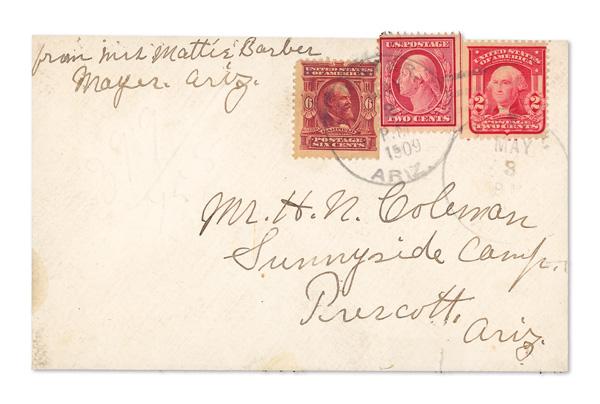 from Mrs Mattie Barber
Mayer. Ariz.
UNITED STATES
OF AMERICA
6 6
POSTAGE
SIX CENTS
U.S. POSTAGE
TWO CENTS
UNITED STATES
OF AMERICA
2 2
POSTAGE
TWO CENTS
P.M.
1909
ARIZ.
MAY
3
Mr. H. N. Coleman
Sunnyside Camp.
Prescott.
Ariz.